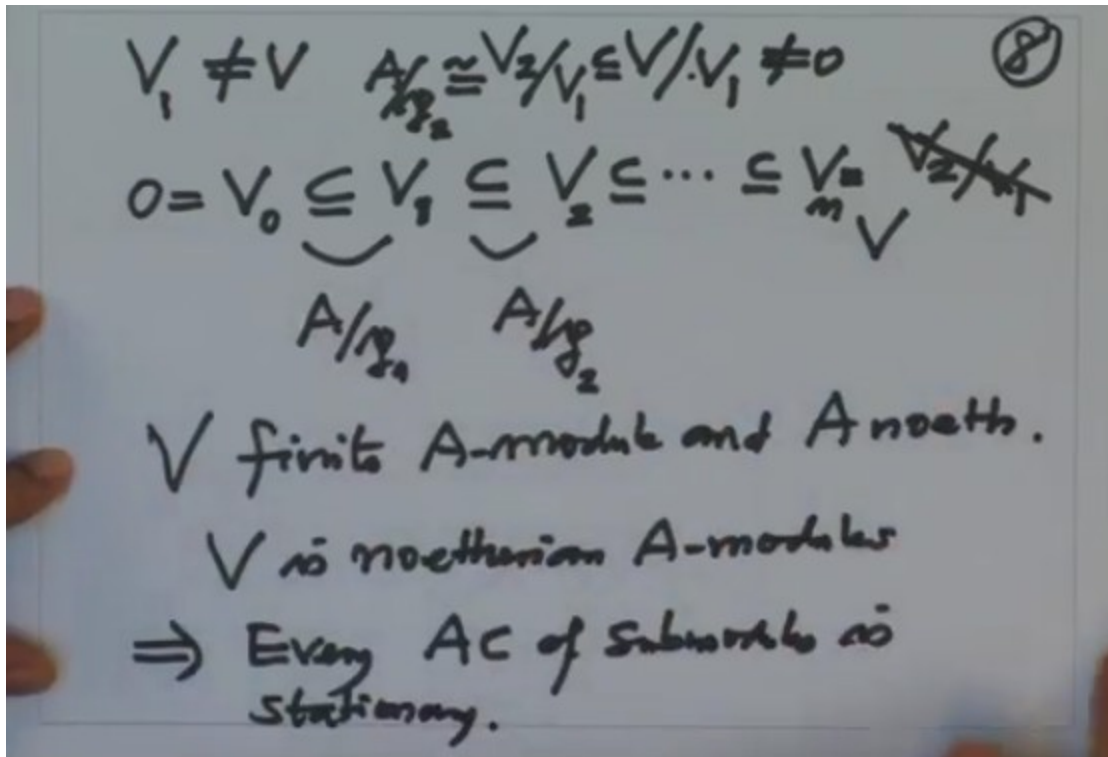 V₁ ≠ V A/𝔭₂ ≅ V₂/V₁ ⊆ V/V₁ ≠ 0 ⑧
0 = V₀ ⊆ V₁ ⊆ V₂ ⊆ ... ⊆ Vₙ = V
A/𝔭₁ A/𝔭₂
V finite A-module and A noeth.
V is noetherian A-modules
⇒ Every AC of submodules is
stationary.